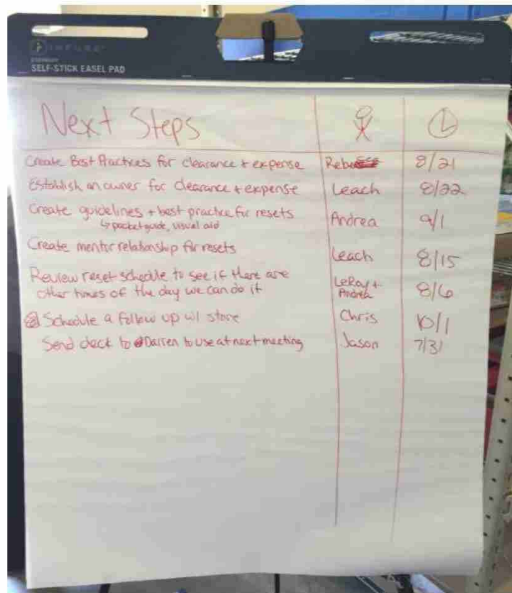 SELF-STICK EASEL PAD
Next Steps
Create Best Practices for clearance + expense Rebe 8/21
Establish an owner for clearance + expense Leach 8/22
Create guidelines + best practice for resets Andrea 9/1
↳ pocket guide, visual aid
Create mentor relationship for resets Leach 8/15
Review reset schedule to see if there are LeRoy + 8/6
other times of the day we can do it Andrea
Schedule a follow up w/ store Chris 10/1
Send deck to Darren to use at next meeting Jason 7/31